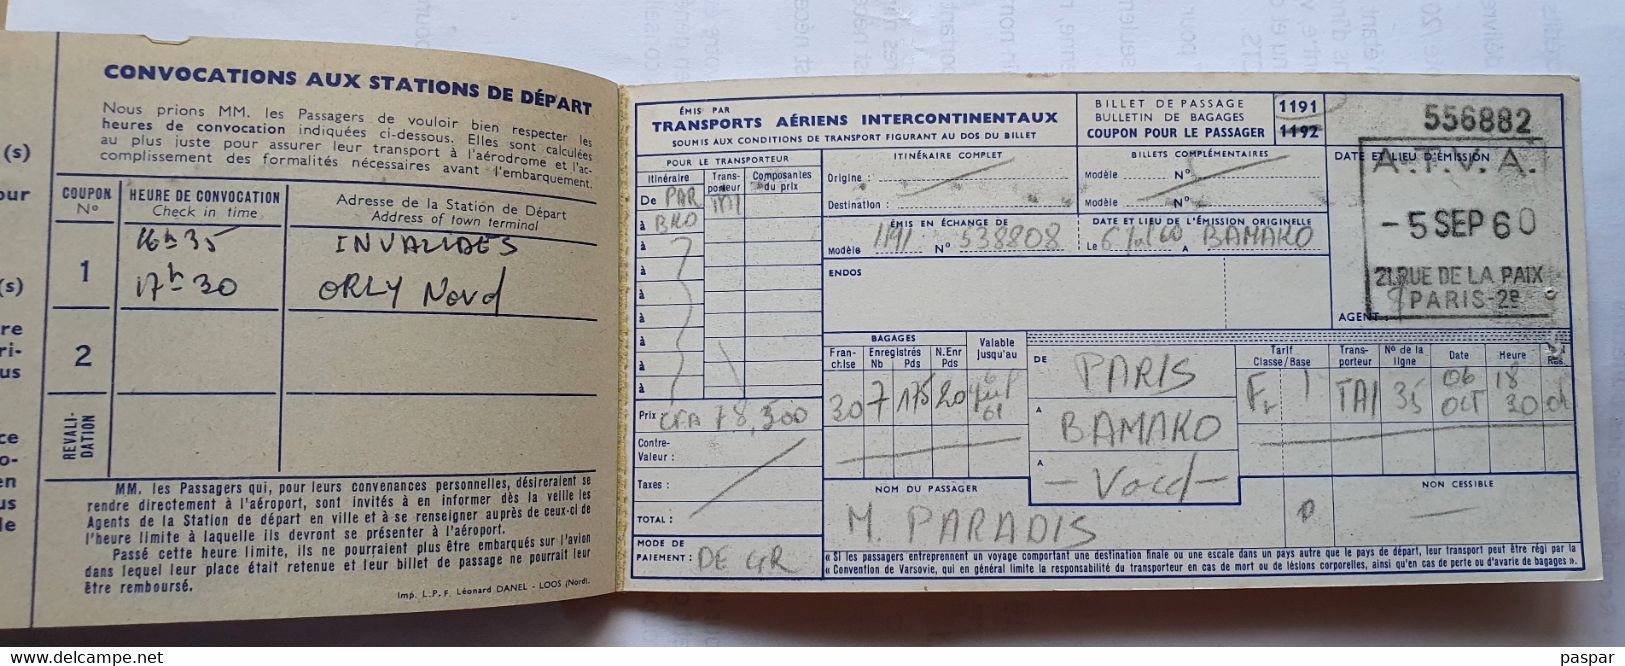 CONVOCATIONS AUX STATIONS DE DÉPART
Nous prions MM. les Passagers de vouloir bien respecter les
heures de convocation indiquées ci-dessous. Elles sont calculées
au plus juste pour assurer leur transport à l'aérodrome et l'ac-
complissement des formalités nécessaires avant l'embarquement.
COUPON No
HEURE DE CONVOCATION
Check in time
Adresse de la Station de Départ
Address of town terminal
1
16h35
INVALIDES
17h30
ORLY Nord
2
REVALI-
DATION
MM. les Passagers qui, pour leurs convenances personnelles, désireraient se
rendre directement à l'aéroport, sont invités à en informer dès la veille les
Agents de la Station de départ en ville et à se renseigner auprès de ceux-ci de
l'heure limite à laquelle ils devront se présenter à l'aéroport.
Passé cette heure limite, ils ne pourraient plus être embarqués sur l'avion
dans lequel leur place était retenue et leur billet de passage ne pourrait leur
être remboursé.
Imp. L.P.F. Léonard DANEL - LOOS (Nord).
(s)
our
(s)
re
ri-
us
ce
o-
en
us
le
ÉMIS PAR
TRANSPORTS AÉRIENS INTERCONTINENTAUX
SOUMIS AUX CONDITIONS DE TRANSPORT FIGURANT AU DOS DU BILLET
BILLET DE PASSAGE
BULLETIN DE BAGAGES
COUPON POUR LE PASSAGER
1191
1192
556882
POUR LE TRANSPORTEUR
Itinéraire
Trans-
porteur
Composantes
du prix
De PAR TAI
à BKO
à
à
à
à
à
à
à
Prix CFA 78,500
Contre-
Valeur :
Taxes :
TOTAL :
MODE DE
PAIEMENT : DE GR
ITINÉRAIRE COMPLET
Origine :
Destination :
BILLETS COMPLÉMENTAIRES
Modèle No
Modèle No
ÉMIS EN ÉCHANGE DE
Modèle 1191 No 538808
DATE ET LIEU DE L'ÉMISSION ORIGINELLE
Le 6 Jul 60 A BAMAKO
ENDOS
DATE ET LIEU D'ÉMISSION
A.T.V.A.
- 5 SEP 60
21, RUE DE LA PAIX
PARIS-2e
AGENT :
BAGAGES
Fran-
chise
Enregistrés
Nb Pds
N.Enr
Pds
Valable
jusqu'au
30 7 175 20
61
DE PARIS
A BAMAKO
A - Void -
Tarif
Classe/Base
Trans-
porteur
No de la
ligne
Date
Heure
Rés.
F 1 TAI 35 06 OCT 18 30 ok
NOM DU PASSAGER
M. PARADIS
NON CESSIBLE
« Si les passagers entreprennent un voyage comportant une destination finale ou une escale dans un pays autre que le pays de départ, leur transport peut être régi par la
« Convention de Varsovie, qui en général limite la responsabilité du transporteur en cas de mort ou de lésions corporelles, ainsi qu'en cas de perte ou d'avarie de bagages ».
www.delcampe.net
paspar